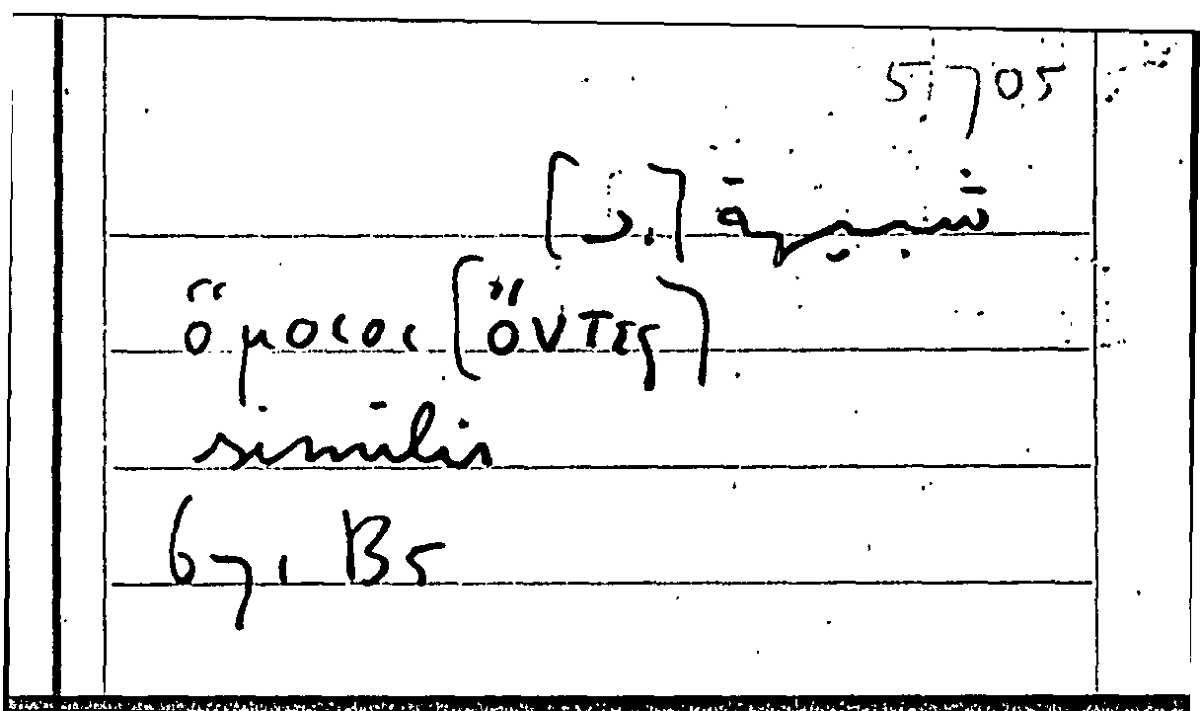 5705
ὅμοιοι [ὄντες]
similis
671 B5